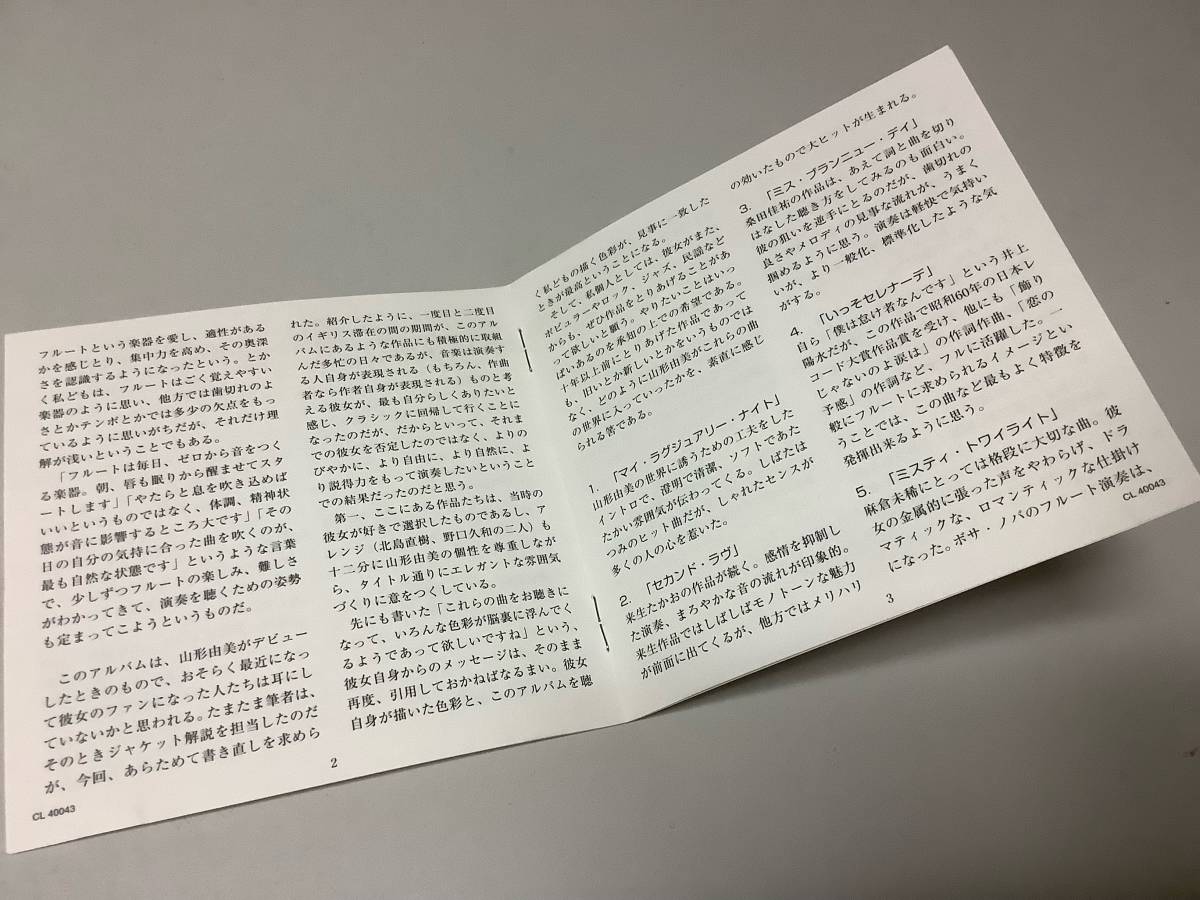 フルートという楽器を愛し、適性がある
かを感じとり、集中力を高め、その奥深
さを認識するようになったという。とか
く私どもは、フルートはごく覚えやすい
楽器のように思い、他方では歯切れのよ
さとかテンポとかでは多少の欠点をもっ
ているように思いがちだが、それだけ理
解が浅いということでもある。
「フルートは毎日、ゼロから音をつく
る楽器。朝、唇も眠りから醒ませてスタ
ートします」「やたらと息を吹き込めば
いいというものではなく、体調、精神状
態が音に影響するところ大です」「その
日の自分の気持に合った曲を吹くのが、
最も自然な状態です」というような言葉
で、少しずつフルートの楽しみ、難しさ
がわかってきて、演奏を聴くための姿勢
も定まってこようというものだ。
このアルバムは、山形由美がデビュー
したときのもので、おそらく最近になっ
て彼女のファンになった人たちは耳にし
ていないかと思われる。たまたま筆者は、
そのときジャケット解説を担当したのだ
が、今回、あらためて書き直しを求めら
CL 40043
れた。紹介したように、一度目と二度目
のイギリス滞在の間の期間が、このアル
バムにあるような作品にも積極的に取組
んだ多忙の日々であるが、音楽は演奏す
る人自身が表現される（もちろん、作曲
者なら作者自身が表現される）ものと考
える彼女が、最も自分らしくありたいと
感じ、クラシックに回帰して行くことに
なったのだが、だからといって、それま
での彼女を否定したのではなく、よりの
びやかに、より自由に、より自然に、よ
り説得力をもって演奏したいということ
での結果だったのだと思う。
第一、ここにある作品たちは、当時の
彼女が好きで選択したものであるし、ア
レンジ（北島直樹、野口久和の二人）も
十二分に山形由美の個性を尊重しなが
ら、タイトル通りにエレガントな雰囲気
づくりに意をつくしている。
先にも書いた「これらの曲をお聴きに
なって、いろんな色彩が脳裏に浮んでく
るようであって欲しいですね」という、
彼女自身からのメッセージは、そのまま
再度、引用しておかねばなるまい。彼女
自身が描いた色彩と、このアルバムを聴
2
く私どもの描く色彩が、見事に一致した
ときが最高ということになる。
そして、私個人としては、彼女がまた、
ポピュラーやロック、ジャズ、民謡など
からも、ぜひ作品をとりあげることがあ
って欲しいと願う。やりたいことはいっ
ぱいあるのを承知の上での希望である。
十年以上前にとりあげた作品であって
も、旧いとか新しいとかをいうものでは
なく、どのように山形由美がこれらの曲
の世界に入っていったかを、素直に感じ
られる筈である。
1. 「マイ・ラグジュアリー・ナイト」
山形由美の世界に誘うための工夫をした
イントロで、澄明で清潔、ソフトであた
たかい雰囲気が伝わってくる。しばたは
つみのヒット曲だが、しゃれたセンスが
多くの人の心を惹いた。
2. 「セカンド・ラヴ」
来生たかおの作品が続く。感情を抑制し
た演奏、まろやかな音の流れが印象的。
来生作品ではしばしばモノトーンな魅力
が前面に出てくるが、他方ではメリハリ
の効いたもので大ヒットが生まれる。
3. 「ミス・ブランニュー・デイ」
桑田佳祐の作品は、あえて詞と曲を切り
はなした聴き方をしてみるのも面白い。
彼の狙いを逆手にとるのだが、歯切れの
良さやメロディの見事な流れが、うまく
掴めるように思う。演奏は軽快で気持い
いが、より一般化、標準化したような気
がする。
4. 「いっそセレナーデ」
自ら「僕は怠け者なんです」という井上
陽水だが、この作品で昭和60年の日本レ
コード大賞作品賞を受け、他にも「飾り
じゃないのよ涙は」の作詞作曲、「恋の
予感」の作詞など、フルに活躍した。一
般にフルートに求められるイメージとい
うことでは、この曲など最もよく特徴を
発揮出来るように思う。
5. 「ミスティ・トワイライト」
麻倉未稀にとっては格段に大切な曲。彼
女の金属的に張った声をやわらげ、ドラ
マティックな、ロマンティックな仕掛け
になった。ボサ・ノバのフルート演奏は、
3
CL 40043